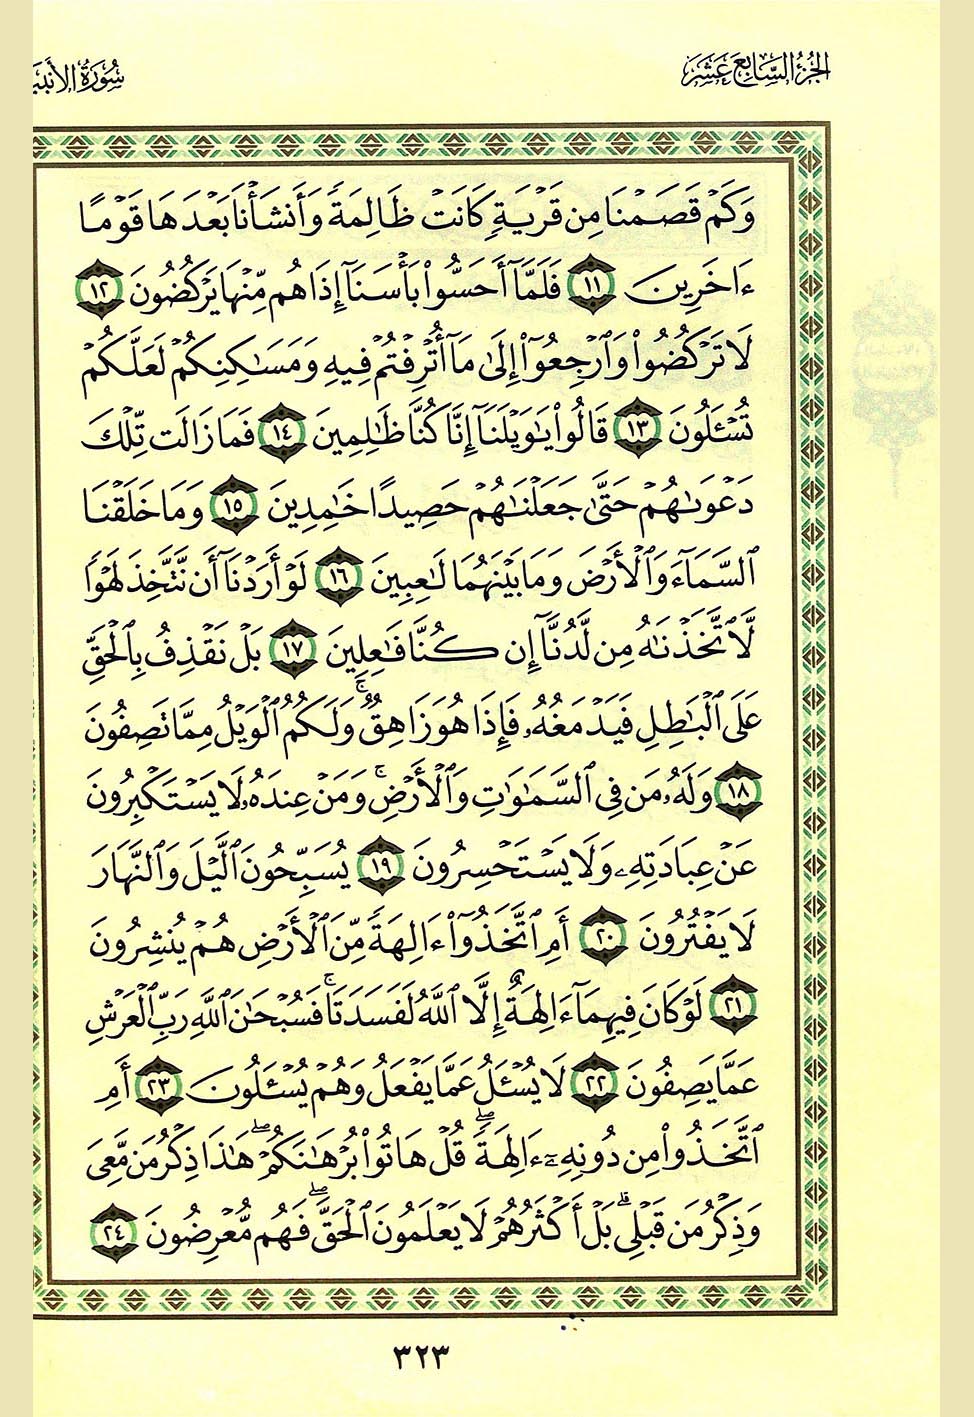 الجُزْءُ السَّابِعَ عَشَرَ
سُورَةُ الأَنبِيَ
وَكَمۡ قَصَمۡنَا مِن قَرۡيَةٖ كَانَتۡ ظَالِمَةٗ وَأَنشَأۡنَا بَعۡدَهَا قَوۡمًا
ءَاخَرِينَ ١١ فَلَمَّآ أَحَسُّواْ بَأۡسَنَآ إِذَا هُم مِّنۡهَا يَرۡكُضُونَ ١٢
لَا تَرۡكُضُواْ وَٱرۡجِعُوٓاْ إِلَىٰ مَآ أُتۡرِفۡتُمۡ فِيهِ وَمَسَٰكِنِكُمۡ لَعَلَّكُمۡ
تُسۡـَٔلُونَ ١٣ قَالُواْ يَٰوَيۡلَنَآ إِنَّا كُنَّا ظَٰلِمِينَ ١٤ فَمَا زَالَت تِّلۡكَ
دَعۡوَىٰهُمۡ حَتَّىٰ جَعَلۡنَٰهُمۡ حَصِيدًا خَٰمِدِينَ ١٥ وَمَا خَلَقۡنَا
ٱلسَّمَآءَ وَٱلۡأَرۡضَ وَمَا بَيۡنَهُمَا لَٰعِبِينَ ١٦ لَوۡ أَرَدۡنَآ أَن نَّتَّخِذَ لَهۡوٗا
لَّٱتَّخَذۡنَٰهُ مِن لَّدُنَّآ إِن كُنَّا فَٰعِلِينَ ١٧ بَلۡ نَقۡذِفُ بِٱلۡحَقِّ
عَلَى ٱلۡبَٰطِلِ فَيَدۡمَغُهُۥ فَإِذَا هُوَ زَاهِقٞۚ وَلَكُمُ ٱلۡوَيۡلُ مِمَّا تَصِفُونَ
١٨ وَلَهُۥ مَن فِي ٱلسَّمَٰوَٰتِ وَٱلۡأَرۡضِۚ وَمَنۡ عِندَهُۥ لَا يَسۡتَكۡبِرُونَ
عَنۡ عِبَادَتِهِۦ وَلَا يَسۡتَحۡسِرُونَ ١٩ يُسَبِّحُونَ ٱلَّيۡلَ وَٱلنَّهَارَ
لَا يَفۡتُرُونَ ٢٠ أَمِ ٱتَّخَذُوٓاْ ءَالِهَةٗ مِّنَ ٱلۡأَرۡضِ هُمۡ يُنشِرُونَ
٢١ لَوۡ كَانَ فِيهِمَآ ءَالِهَةٌ إِلَّا ٱللَّهُ لَفَسَدَتَاۚ فَسُبۡحَٰنَ ٱللَّهِ رَبِّ ٱلۡعَرۡشِ
عَمَّا يَصِفُونَ ٢٢ لَا يُسۡـَٔلُ عَمَّا يَفۡعَلُ وَهُمۡ يُسۡـَٔلُونَ ٢٣ أَمِ
ٱتَّخَذُواْ مِن دُونِهِۦٓ ءَالِهَةٗۖ قُلۡ هَاتُواْ بُرۡهَٰنَكُمۡۖ هَٰذَا ذِكۡرُ مَن مَّعِيَ
وَذِكۡرُ مَن قَبۡلِيۚ بَلۡ أَكۡثَرُهُمۡ لَا يَعۡلَمُونَ ٱلۡحَقَّۖ فَهُم مُّعۡرِضُونَ ٢٤
٣٢٣